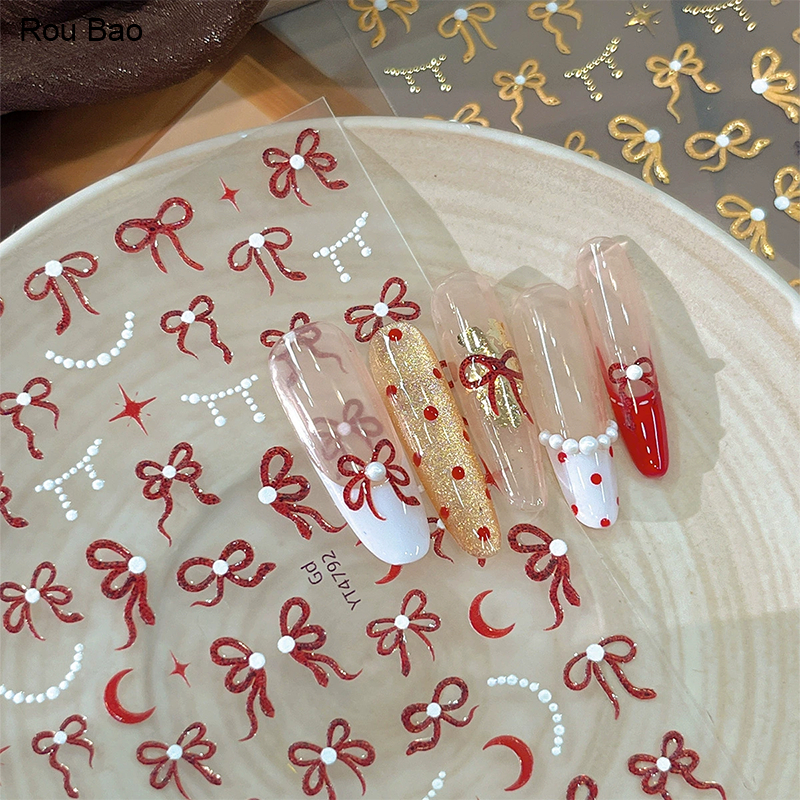 Rou Bao
Gd
YT4792